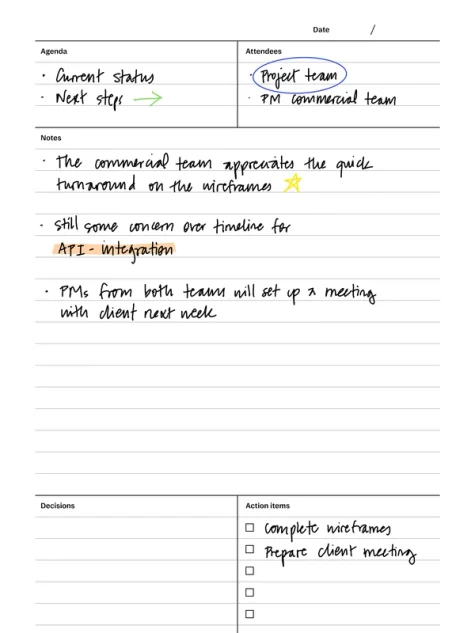 Date /
Agenda
Attendees
· Current status
· Next steps →
· Project team
· PM commercial team
Notes
· The commercial team appreciates the quick
turnaround on the wireframes ☆
· Still some concern over timeline for
API - integration
· PMs from both teams will set up a meeting
with client next week
Decisions
Action items
☐ Complete wireframes
☐ Prepare client meeting
☐
☐
☐